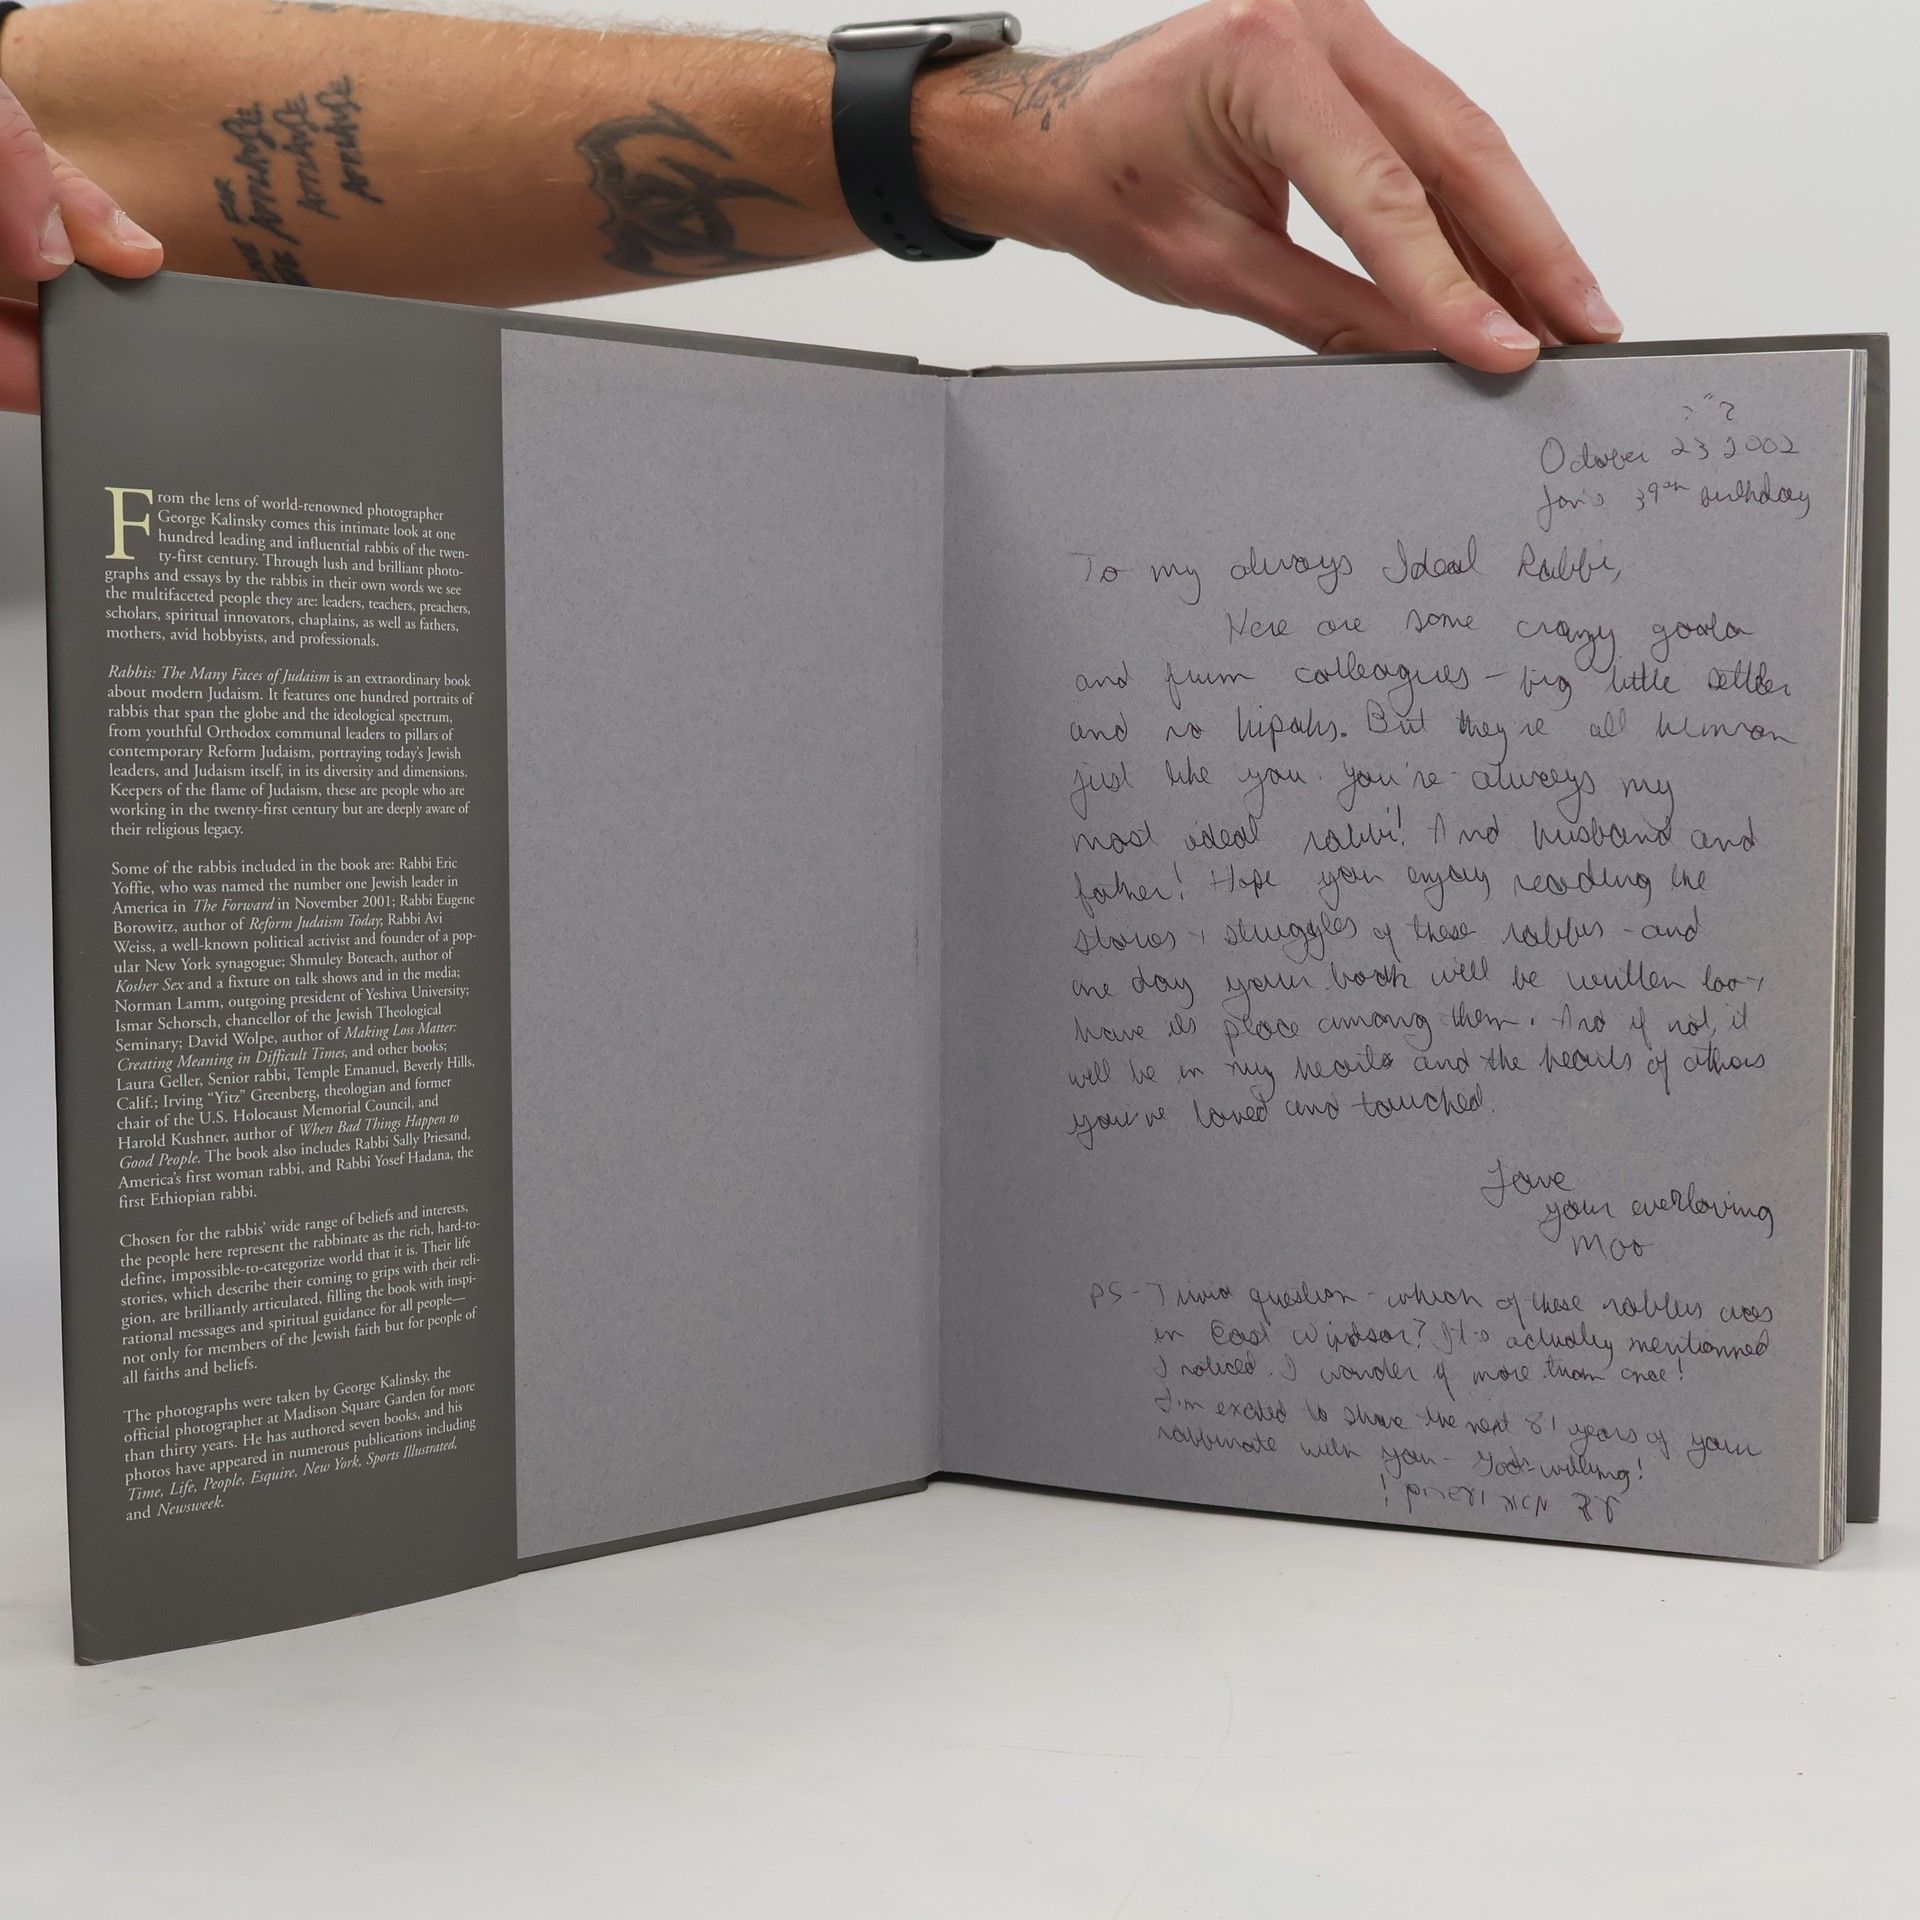 FOR
APPLAUSE
APPLAUSE
APPLAUSE
From the lens of world-renowned photographer
George Kalinsky comes this intimate look at one
hundred leading and influential rabbis of the twen-
ty-first century. Through lush and brilliant photo-
graphs and essays by the rabbis in their own words we see
the multifaceted people they are: leaders, teachers, preachers,
scholars, spiritual innovators, chaplains, as well as fathers,
mothers, avid hobbyists, and professionals.
Rabbis: The Many Faces of Judaism is an extraordinary book
about modern Judaism. It features one hundred portraits of
rabbis that span the globe and the ideological spectrum,
from youthful Orthodox communal leaders to pillars of
contemporary Reform Judaism, portraying today's Jewish
leaders, and Judaism itself, in its diversity and dimensions.
Keepers of the flame of Judaism, these are people who are
working in the twenty-first century but are deeply aware of
their religious legacy.
Some of the rabbis included in the book are: Rabbi Eric
Yoffie, who was named the number one Jewish leader in
America in The Forward in November 2001; Rabbi Eugene
Borowitz, author of Reform Judaism Today; Rabbi Avi
Weiss, a well-known political activist and founder of a pop-
ular New York synagogue; Shmuley Boteach, author of
Kosher Sex and a fixture on talk shows and in the media;
Norman Lamm, outgoing president of Yeshiva University;
Ismar Schorsch, chancellor of the Jewish Theological
Seminary; David Wolpe, author of Making Loss Matter:
Creating Meaning in Difficult Times, and other books;
Laura Geller, Senior rabbi, Temple Emanuel, Beverly Hills,
Calif.; Irving “Yitz” Greenberg, theologian and former
chair of the U.S. Holocaust Memorial Council, and
Harold Kushner, author of When Bad Things Happen to
Good People. The book also includes Rabbi Sally Priesand,
America's first woman rabbi, and Rabbi Yosef Hadana, the
first Ethiopian rabbi.
Chosen for the rabbis' wide range of beliefs and interests,
the people here represent the rabbinate as the rich, hard-to-
define, impossible-to-categorize world that it is. Their life
stories, which describe their coming to grips with their reli-
gion, are brilliantly articulated, filling the book with inspi-
rational messages and spiritual guidance for all people—
not only for members of the Jewish faith but for people of
all faiths and beliefs.
The photographs were taken by George Kalinsky, the
official photographer at Madison Square Garden for more
than thirty years. He has authored seven books, and his
photos have appeared in numerous publications including
Time, Life, People, Esquire, New York, Sports Illustrated,
and Newsweek.
October 23 2002
Jon's 39th birthday
To my always Ideal Rabbi,
Here are some crazy
and frum colleagues - big little settler
and no kipahs. But they're all human
just like you. You're always my
most ideal rabbi! And husband and
father! Hope you enjoy reading the
stories + struggles of these rabbis - and
one day your book will be written too +
have its place among them. And if not, it
will be in my hearts and the hearts of others
you've loved and touched.
Love
your everloving
Moo
PS - Trivia question - which of these rabbis was
in East Windsor? It's actually mentionned
I noticed. I wonder if more than once!
I'm excited to share the next 81 years of your
rabbinate with you - God-willing!